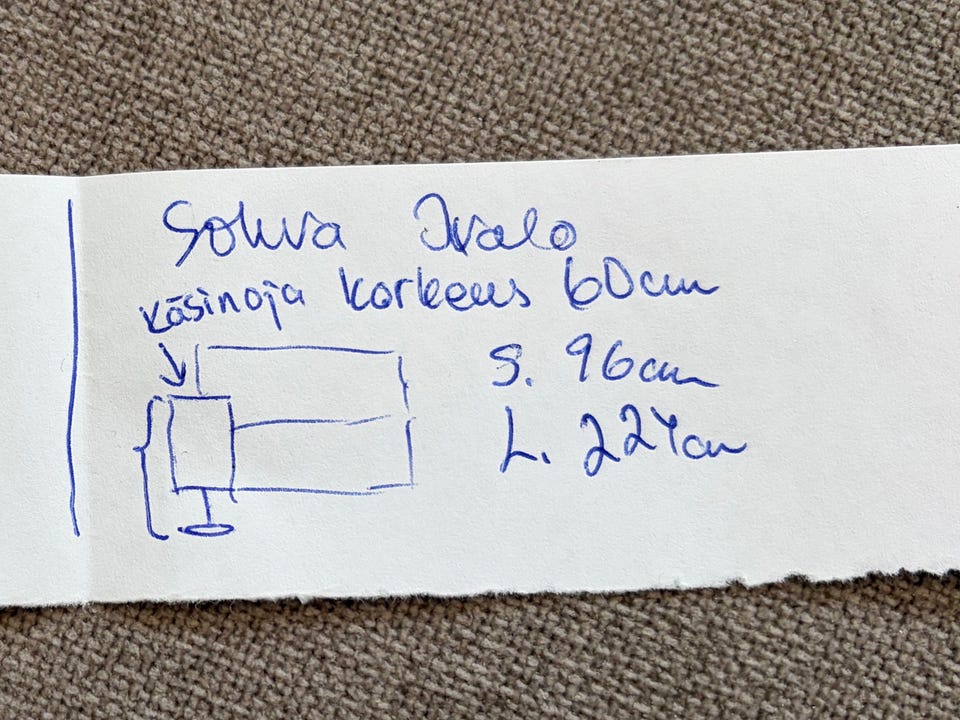 Sohva Ivalo
käsinoja korkeus 60cm
S. 96cm
L. 224cm